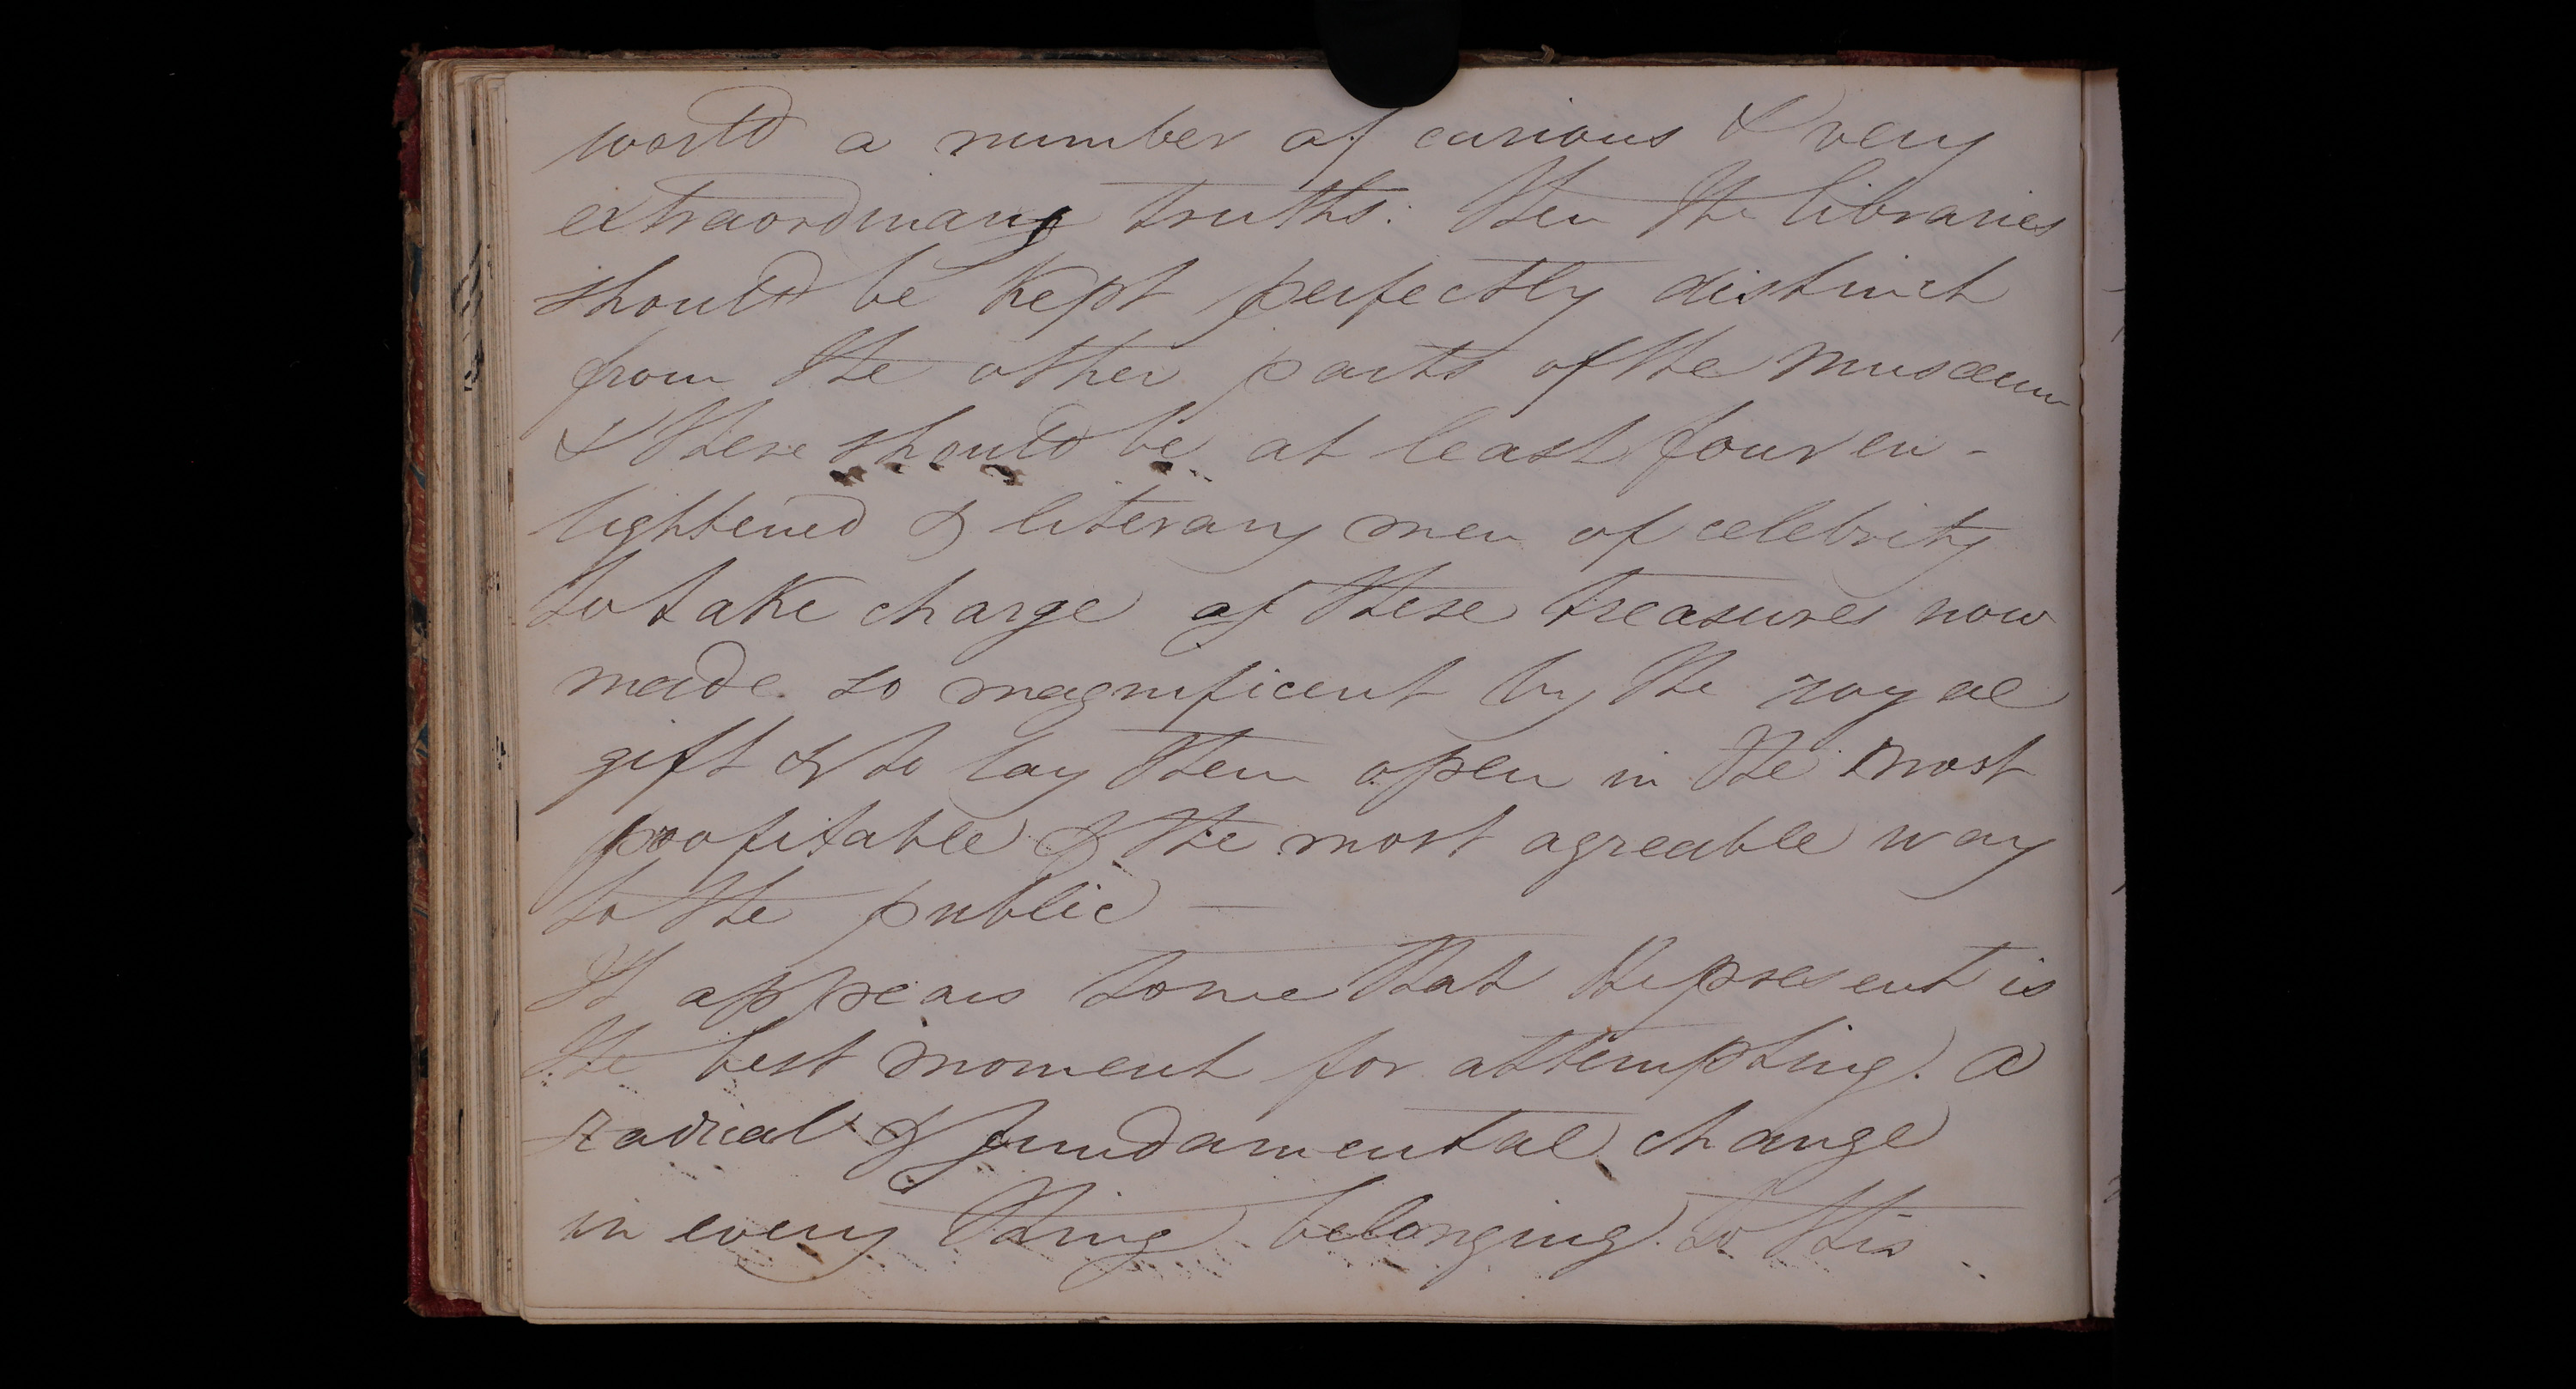 world a number of curious & very
extraordinary truths. Then the libraries
should be kept perfectly distinct
from the other parts of the Musæum
& there should be at least four en-
lightened & literary men of celebrity
to take charge of these treasures now
made so magnificent by the royal
gift & to lay them open in the most
profitable & the most agreable way
to the public —
It appears to me that the present is
the best moment for attempting a
radical & fundamental change
in every thing belonging to this